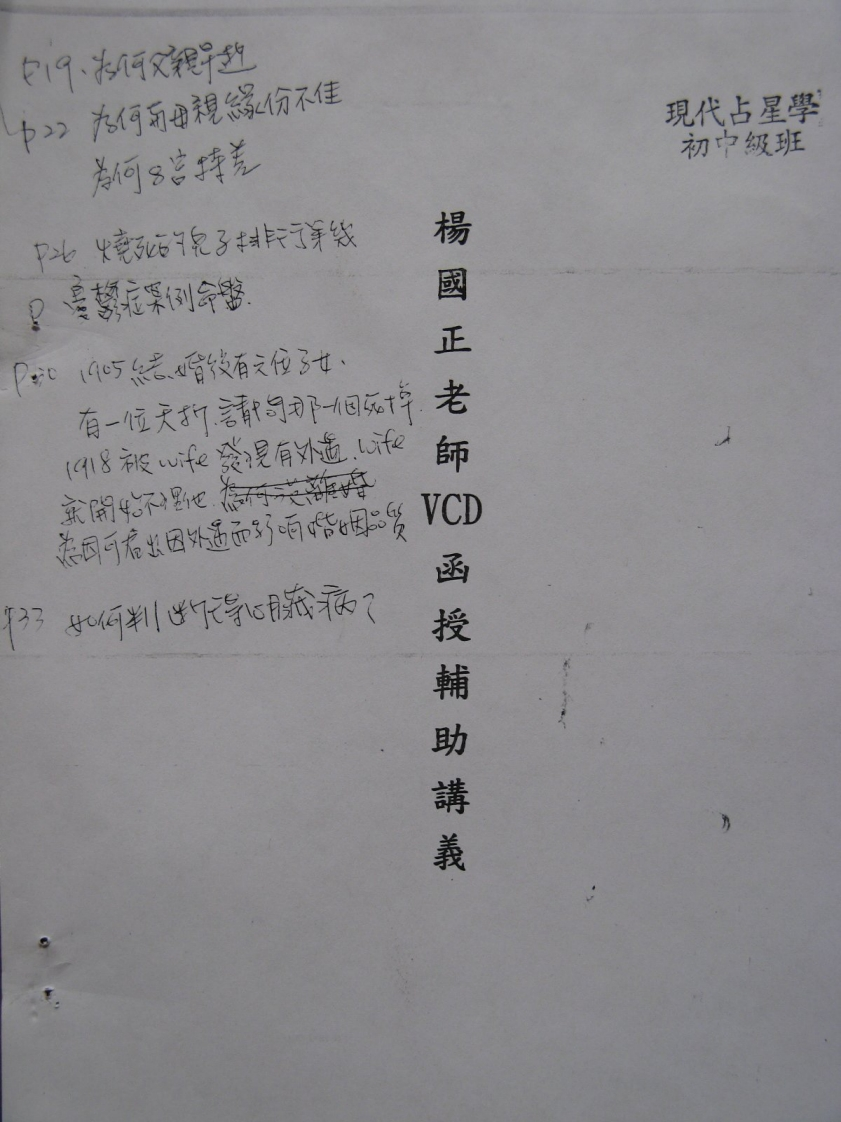 P19、為何父親早逝
P22 為何與母親緣份不佳
為何8宮特差
P26 燒死的兒子排行第幾
P 憂鬱症案例命盤.
P30 1905結婚後有六位子女、
有一位夭折.請問那一個死掉.
1918被wife發現有外遇.wife
就開始不理他.為何沒離婚
為因可看出因外遇而影响婚姻品質
P33 如何判斷得心臟病?
現代占星學
初中級班
楊國正老師VCD函授輔助講義